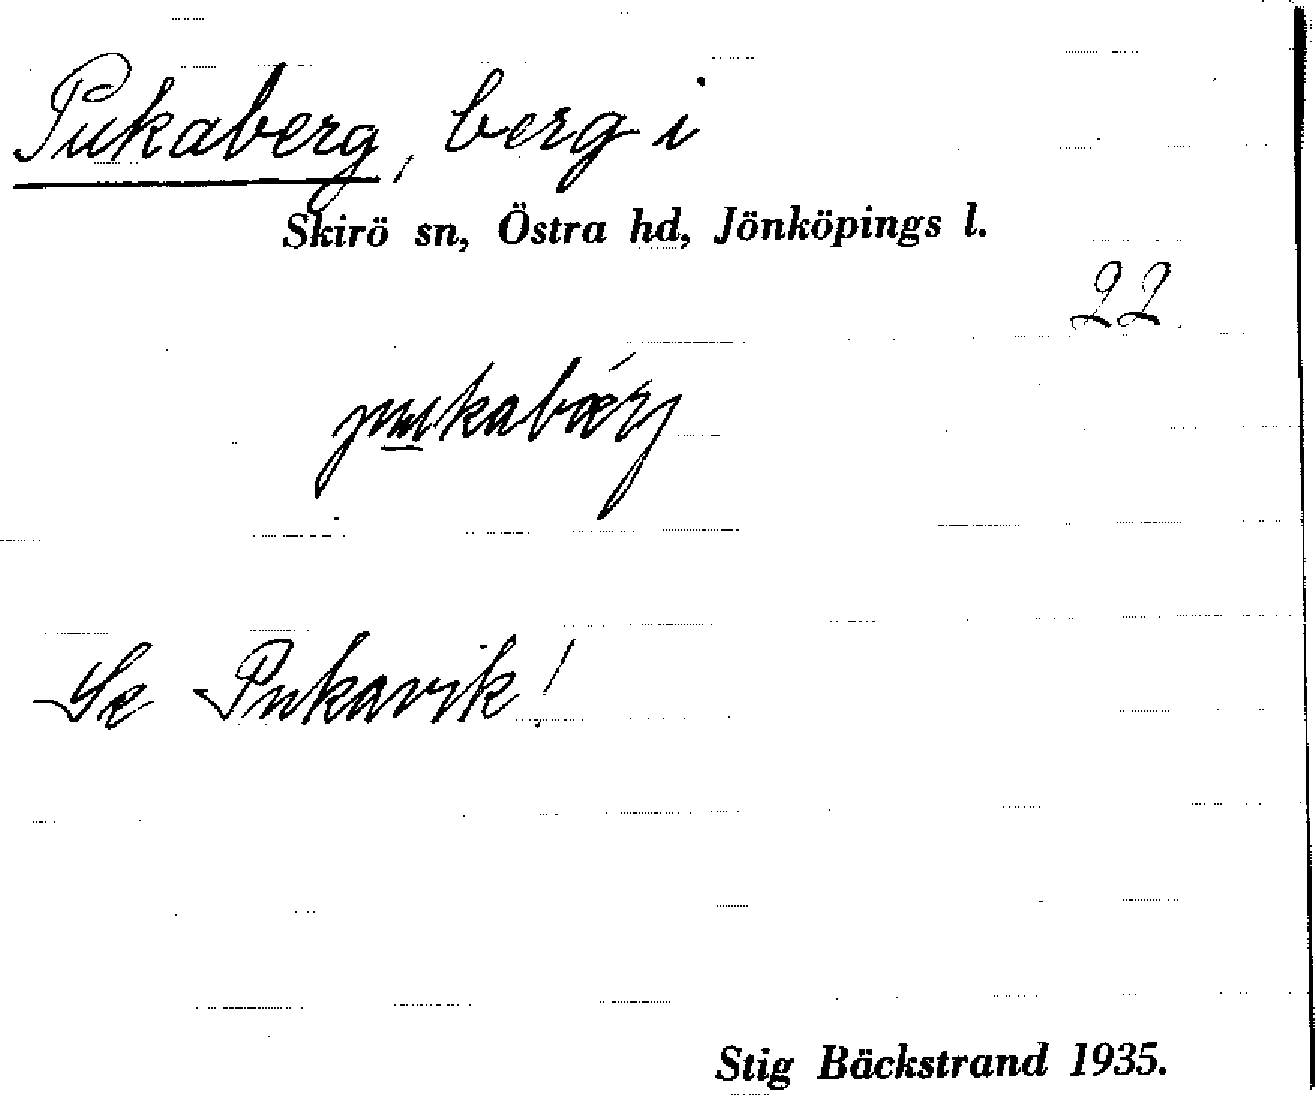 Pukaberg, berg i
Skirö sn, Östra hd, Jönköpings l.
22
pukabärj
Se Pukavik!
Stig Bäckstrand 1935.